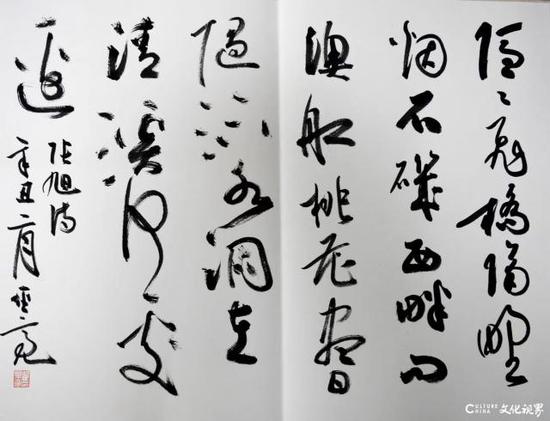 隐〻飞橋隔野
烟石磯西畔问
漁船桃花尽日
随流水洞在
清溪何处
边
张旭诗
辛丑二月
CULTURE CHINA 文化视界